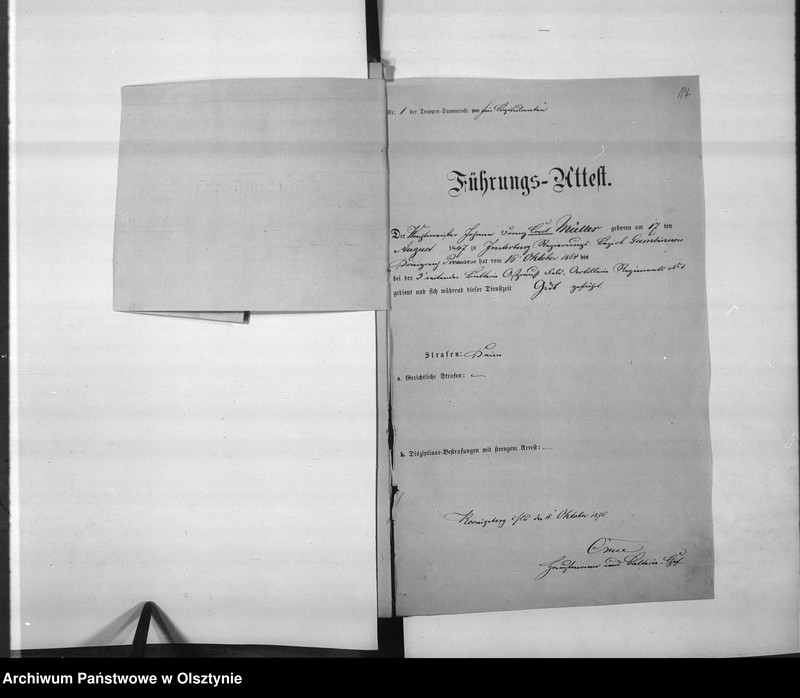 114
Nr. 1 der Truppen-Stammrolle
Führungs-Attest.
Der Wachtmeister Johann Carl Müller geboren am 17 ten
August 1847 zu Insterburg Regierungs-Bezirk Gumbinnen
Königreich Preussen hat vom 15 Oktober bis
bei der 3 reitenden Batterie Ostpreuß. Feld-Artillerie Regiments No 1
gedient und sich während dieser Dienstzeit Gut geführt.
Strafen: Keine
a. Gerichtliche Strafen: —
b. Disziplinar-Bestrafungen mit strengem Arrest: —
Koenigsberg den Oktober
Hauptmann und Batterie-Chef
Archiwum Państwowe w Olsztynie